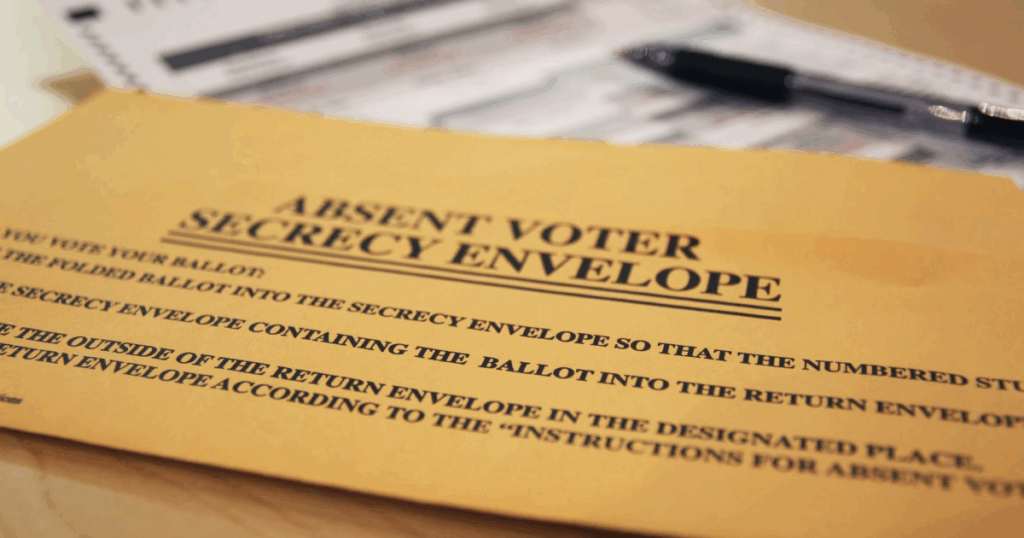 ABSENT VOTER
SECRECY ENVELOPE
YOU VOTE YOUR BALLOT:
THE FOLDED BALLOT INTO THE SECRECY ENVELOPE SO THAT THE NUMBERED
SECRECY ENVELOPE CONTAINING THE BALLOT INTO THE RETURN
THE OUTSIDE OF THE RETURN ENVELOPE IN THE DESIGNATED PLACE.
ENVELOPE ACCORDING TO THE “INSTRUCTIONS FOR ABSENT